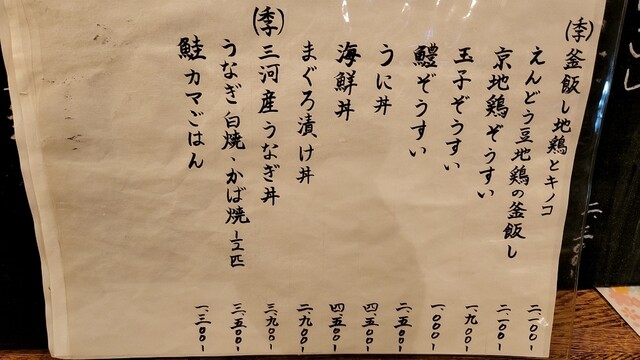 (季)釜飯し地鶏とキノコ 二、一〇〇-
えんどう豆地鶏の釜飯し 二、一〇〇-
京地鶏ぞうすい 一、九〇〇-
玉子ぞうすい 一、〇〇〇-
鱧ぞうすい 二、五〇〇-
うに丼 四、五〇〇-
海鮮丼 四、五〇〇-
まぐろ漬け丼 二、九〇〇-
(季)三河産うなぎ丼 三、九〇〇-
うなぎ白焼、かば焼 1/2匹 三、五〇〇-
鮭カマごはん 一、三〇〇-